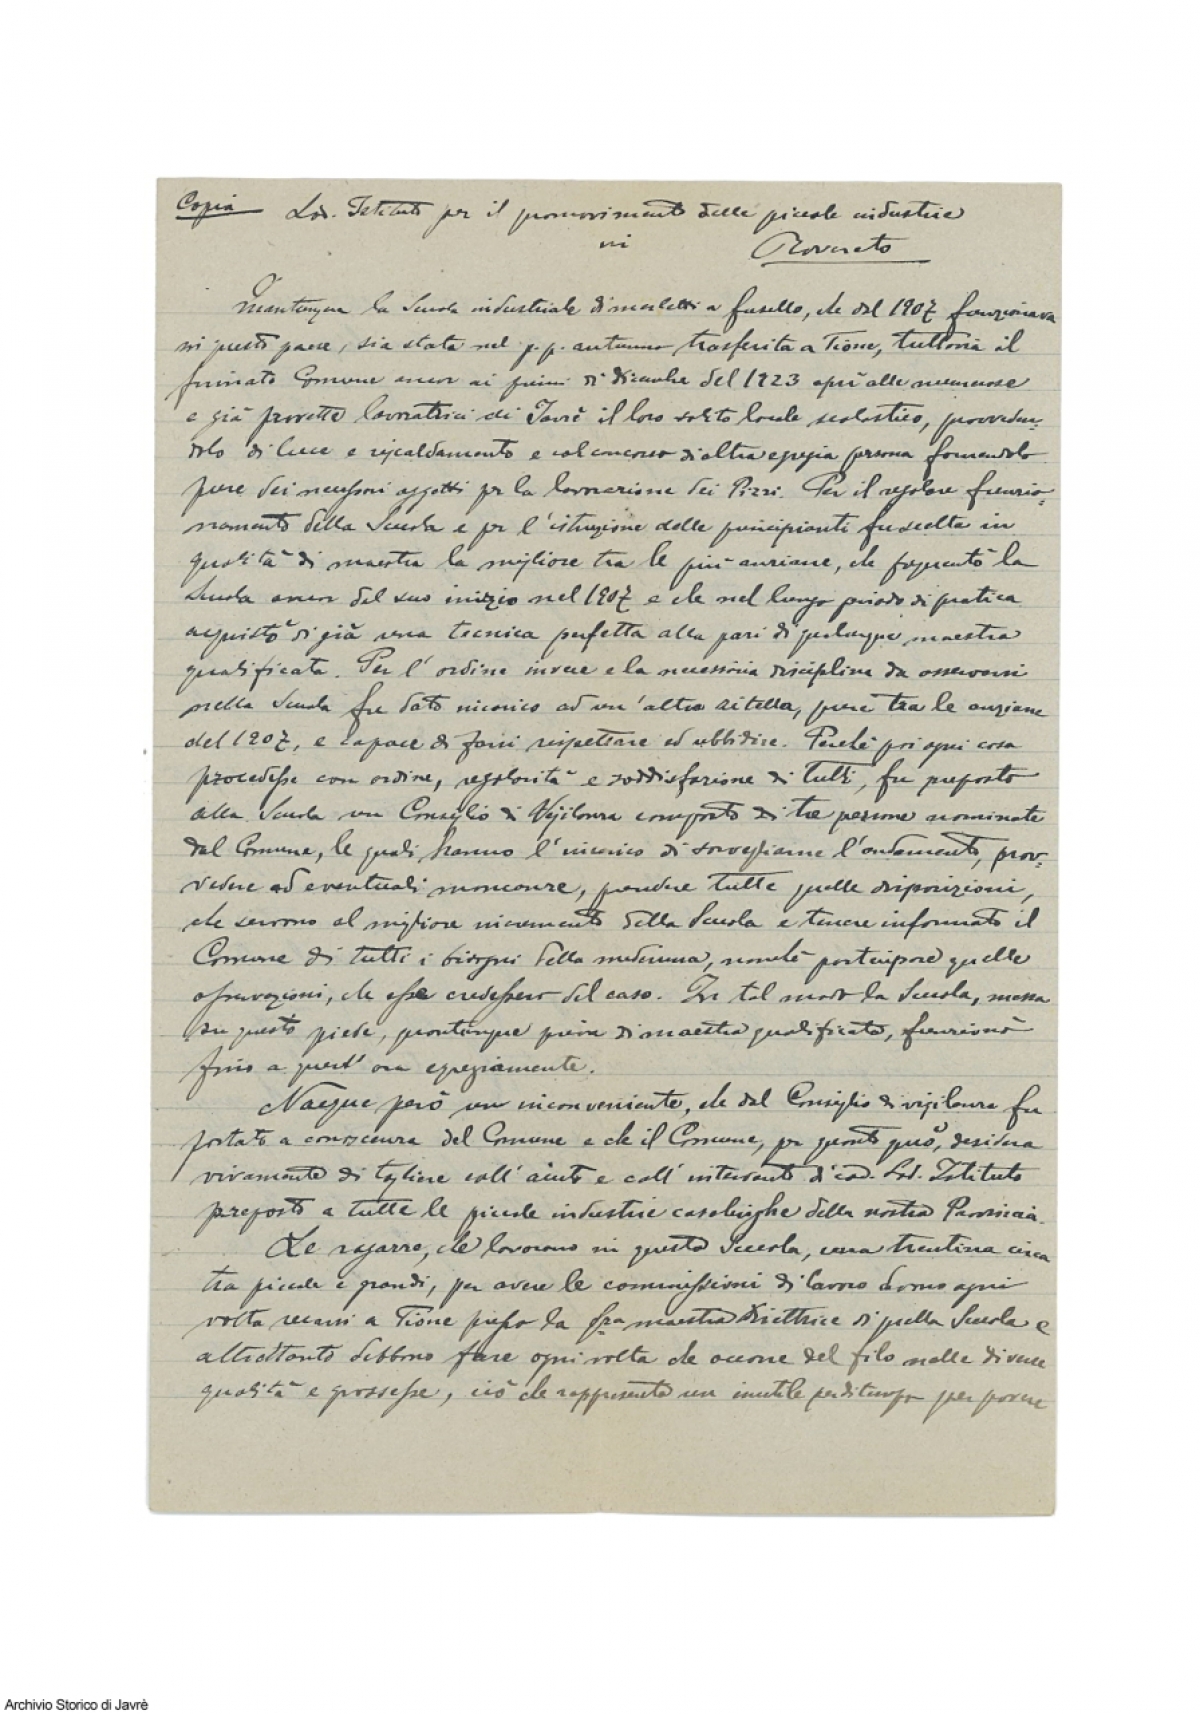 Copia Lod. Istituto per il promovimento delle piccole industrie
in Rovereto
Quantunque la Scuola industriale di merletti a fusello, che dal 1907 funzionava
in questo paese, sia stata nel p. p. autunno trasferita a Tione, tuttavia il
firmato Comune ancor ai primi di dicembre del 1923 aprì alle numerose
e già provette lavoratrici di Javrè il loro solito locale scolastico, provveden-
dolo di luce e riscaldamento e col concorso di altra egregia persona fornendolo
pure dei necessari oggetti per la lavorazione dei Pizzi. Per il regolare funzio-
namento della Scuola e per l'istruzione delle principianti fu scelta in
qualità di maestra la migliore tra le più anziane, che frequentò la
Scuola ancor dal suo inizio nel 1907 e che nel lungo periodo di pratica
acquistò di già una tecnica perfetta alla pari di qualunque maestra
qualificata. Per l'ordine invece e la necessaria disciplina da osservarsi
nella Scuola fu dato incarico ad un'altra zitella, pure tra le anziane
del 1907, e capace di farsi rispettare ed ubbidire. Perchè poi ogni cosa
procedesse con ordine, regolarità e soddisfazione di tutti, fu preposto
alla Scuola un Consiglio di Vigilanza composto di tre persone nominate
dal Comune, le quali hanno l'incarico di sorvegliarne l'andamento, prov-
vedere ad eventuali mancanze, prendere tutte quelle disposizioni,
che servono al migliore incremento della Scuola e tenere informato il
Comune di tutti i bisogni della medesima, nonchè partecipare quelle
osservazioni, che esse credessero del caso. In tal modo la Scuola, messa
su questo piede, quantunque priva di maestra qualificata, funzionò
fino a quest'ora egregiamente.
Nacque però un inconveniente, che dal Consiglio di vigilanza fu
portato a conoscenza del Comune e che il Comune, per quanto può, desidera
vivamente di togliere coll'aiuto e coll'intervento di cod. Lod. Istituto
preposto a tutte le piccole industrie casalinghe della nostra Provincia.
Le ragazze, che lavorano in questa Scuola, una trentina circa
tra piccole e grandi, per avere le commissioni di lavoro devono ogni
volta recarsi a Tione presso la Sra maestra direttrice di quella Scuola e
altrettanto debbono fare ogni volta che occorre del filo nelle diverse
qualità e grossezze, ciò che rappresenta un inutile perditempo per povere
Archivio Storico di Javrè